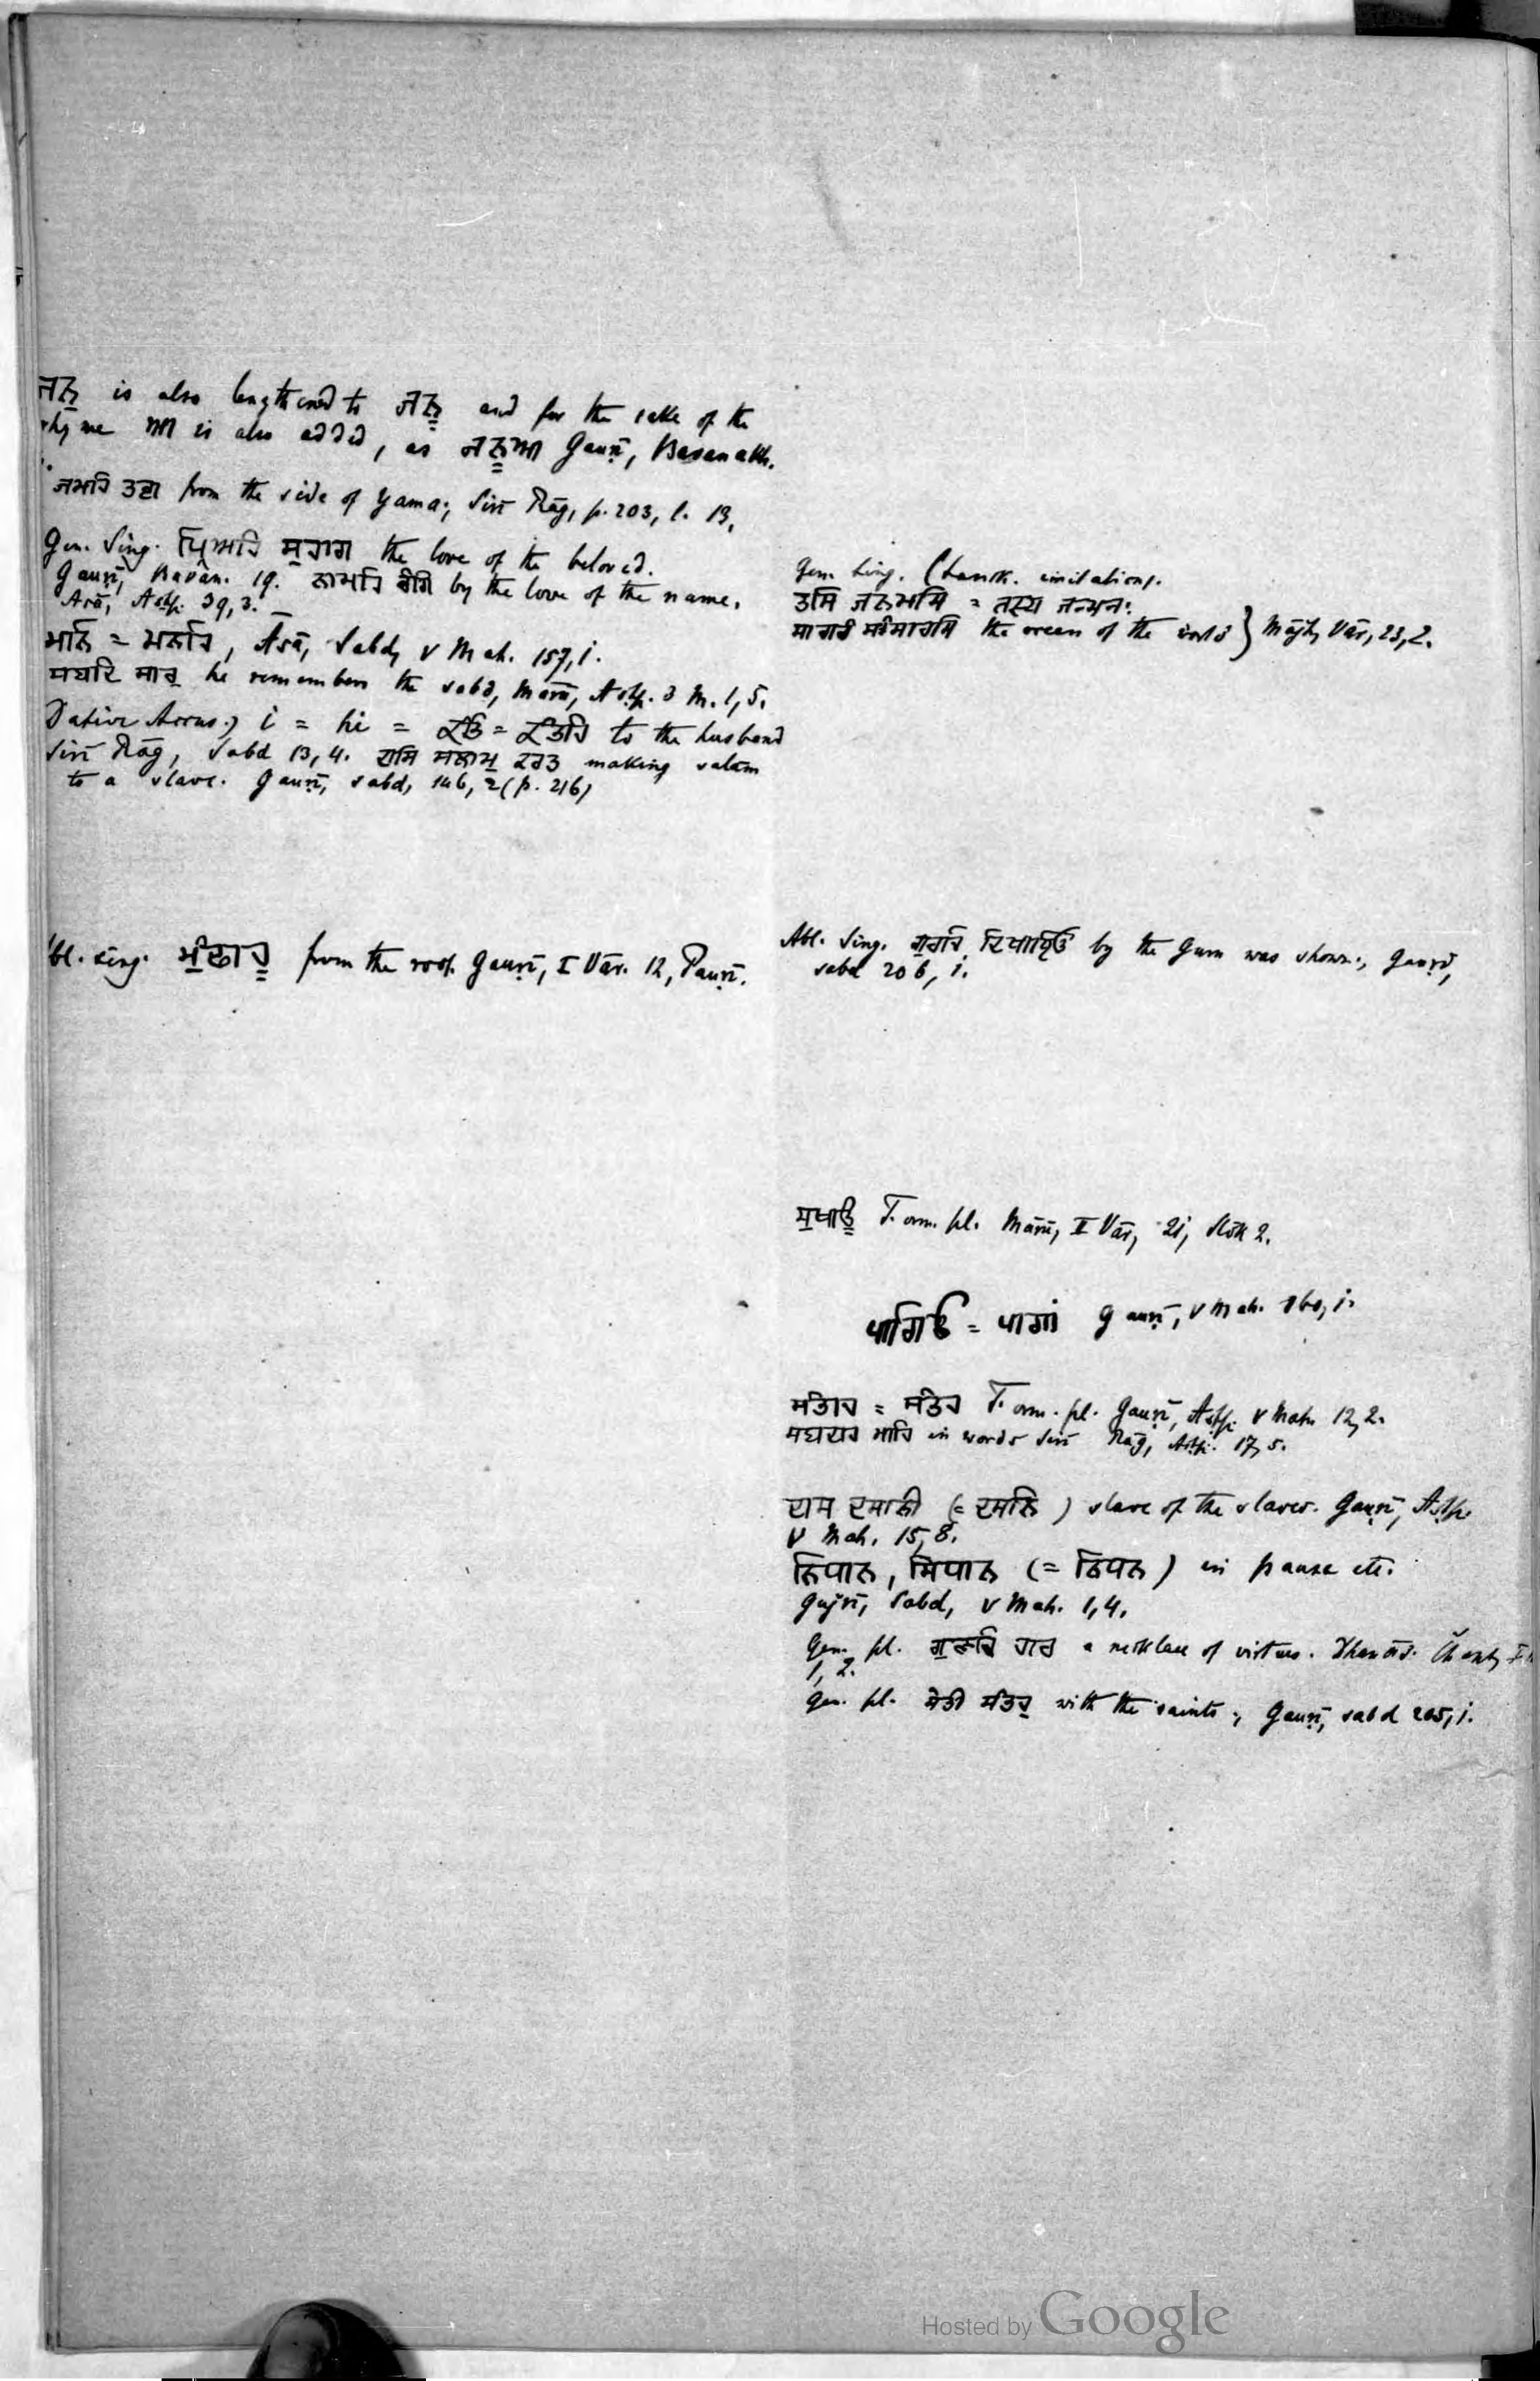 ਜਨੁ is also lengthened to ਜਨੂ and for the sake of the
rhyme ਆ is also added, as ਜਨੂਆ Gauṛī, Bavanakh.
ਜਮਹਿ ਤਣਾ from the side of Yama; Sirī Rāg, p. 203, l. 13,
Gen. Sing. ਪ੍ਰਿਅਹਿ ਸੁਹਾਗ the love of the beloved.
Gauṛī, Bavan. 19. ਨਾਮਹਿ ਰੰਗਿ by the love of the name.
Asā, Astp. 39, 3.
ਮਨਿ = ਮਨਹਿ, Āsā, Sabd, V Mah. 157, 1.
he remembers the sabd, Mārū, Astp. 3 M. 1, 5.
Dative Accus.) i = hi = ਕੰਤਿ = ਕੰਤਹਿ to the husband
Sirī Rāg, Sabd 13, 4. ਦਾਸਿ ਸਲਾਮੁ ਕਰਤ making salām
to a slave. Gauṛī, sabd, 146, 2 (p. 216)
bl. sing. ਮੂੰਲਾਹੂ from the root. Gauṛī, I Vār. 12, Pauṛī.
Gen. Sing. (Sansk. imitation).
ਤਸਿ ਜਨਮਸਿ = तस्य जन्मनः
ਸਾਗਰੰ ਸੰਸਾਰਸਿ the ocean of the world } Mājh, Vār, 23, 2.
Abl. Sing. ਗੁਰਹਿ ਦਿਖਾਇਓ by the Guru was shown; Gauṛī,
sabd 206, 1.
Form. pl. Mārū, II Vār, 21, Slōk 2.
ਪਾਗਿਓ = ਪਾਗਾਂ Gauṛī, V Mah. 160, 1.
ਸੰਤਾਹ = ਸੰਤਹ Form. pl. Gauṛī, Astp. V Mah. 12, 2.
in words Sirī Rāg, Astp. 17, 5.
ਦਾਸ ਦਸਾਨੀ (= ਦਸਨਿ) slave of the slaves. Gauṛī, Astp.
V Mah. 15, 8.
ਨਿਧਾਨ, ਸਿਧਾਨ (= ਨਿਧਨ) in pause etc.
Gujrī, Sabd, V Mah. 1, 4.
Gen. pl. ਗੁਣਹਿ ਹਾਰ a necklace of virtues. Dhanās.
1, 2.
Gen. pl. ਸੇਤੀ ਸੰਤਹੁ with the saints; Gauṛī, sabd 205, 1.
Hosted by Google